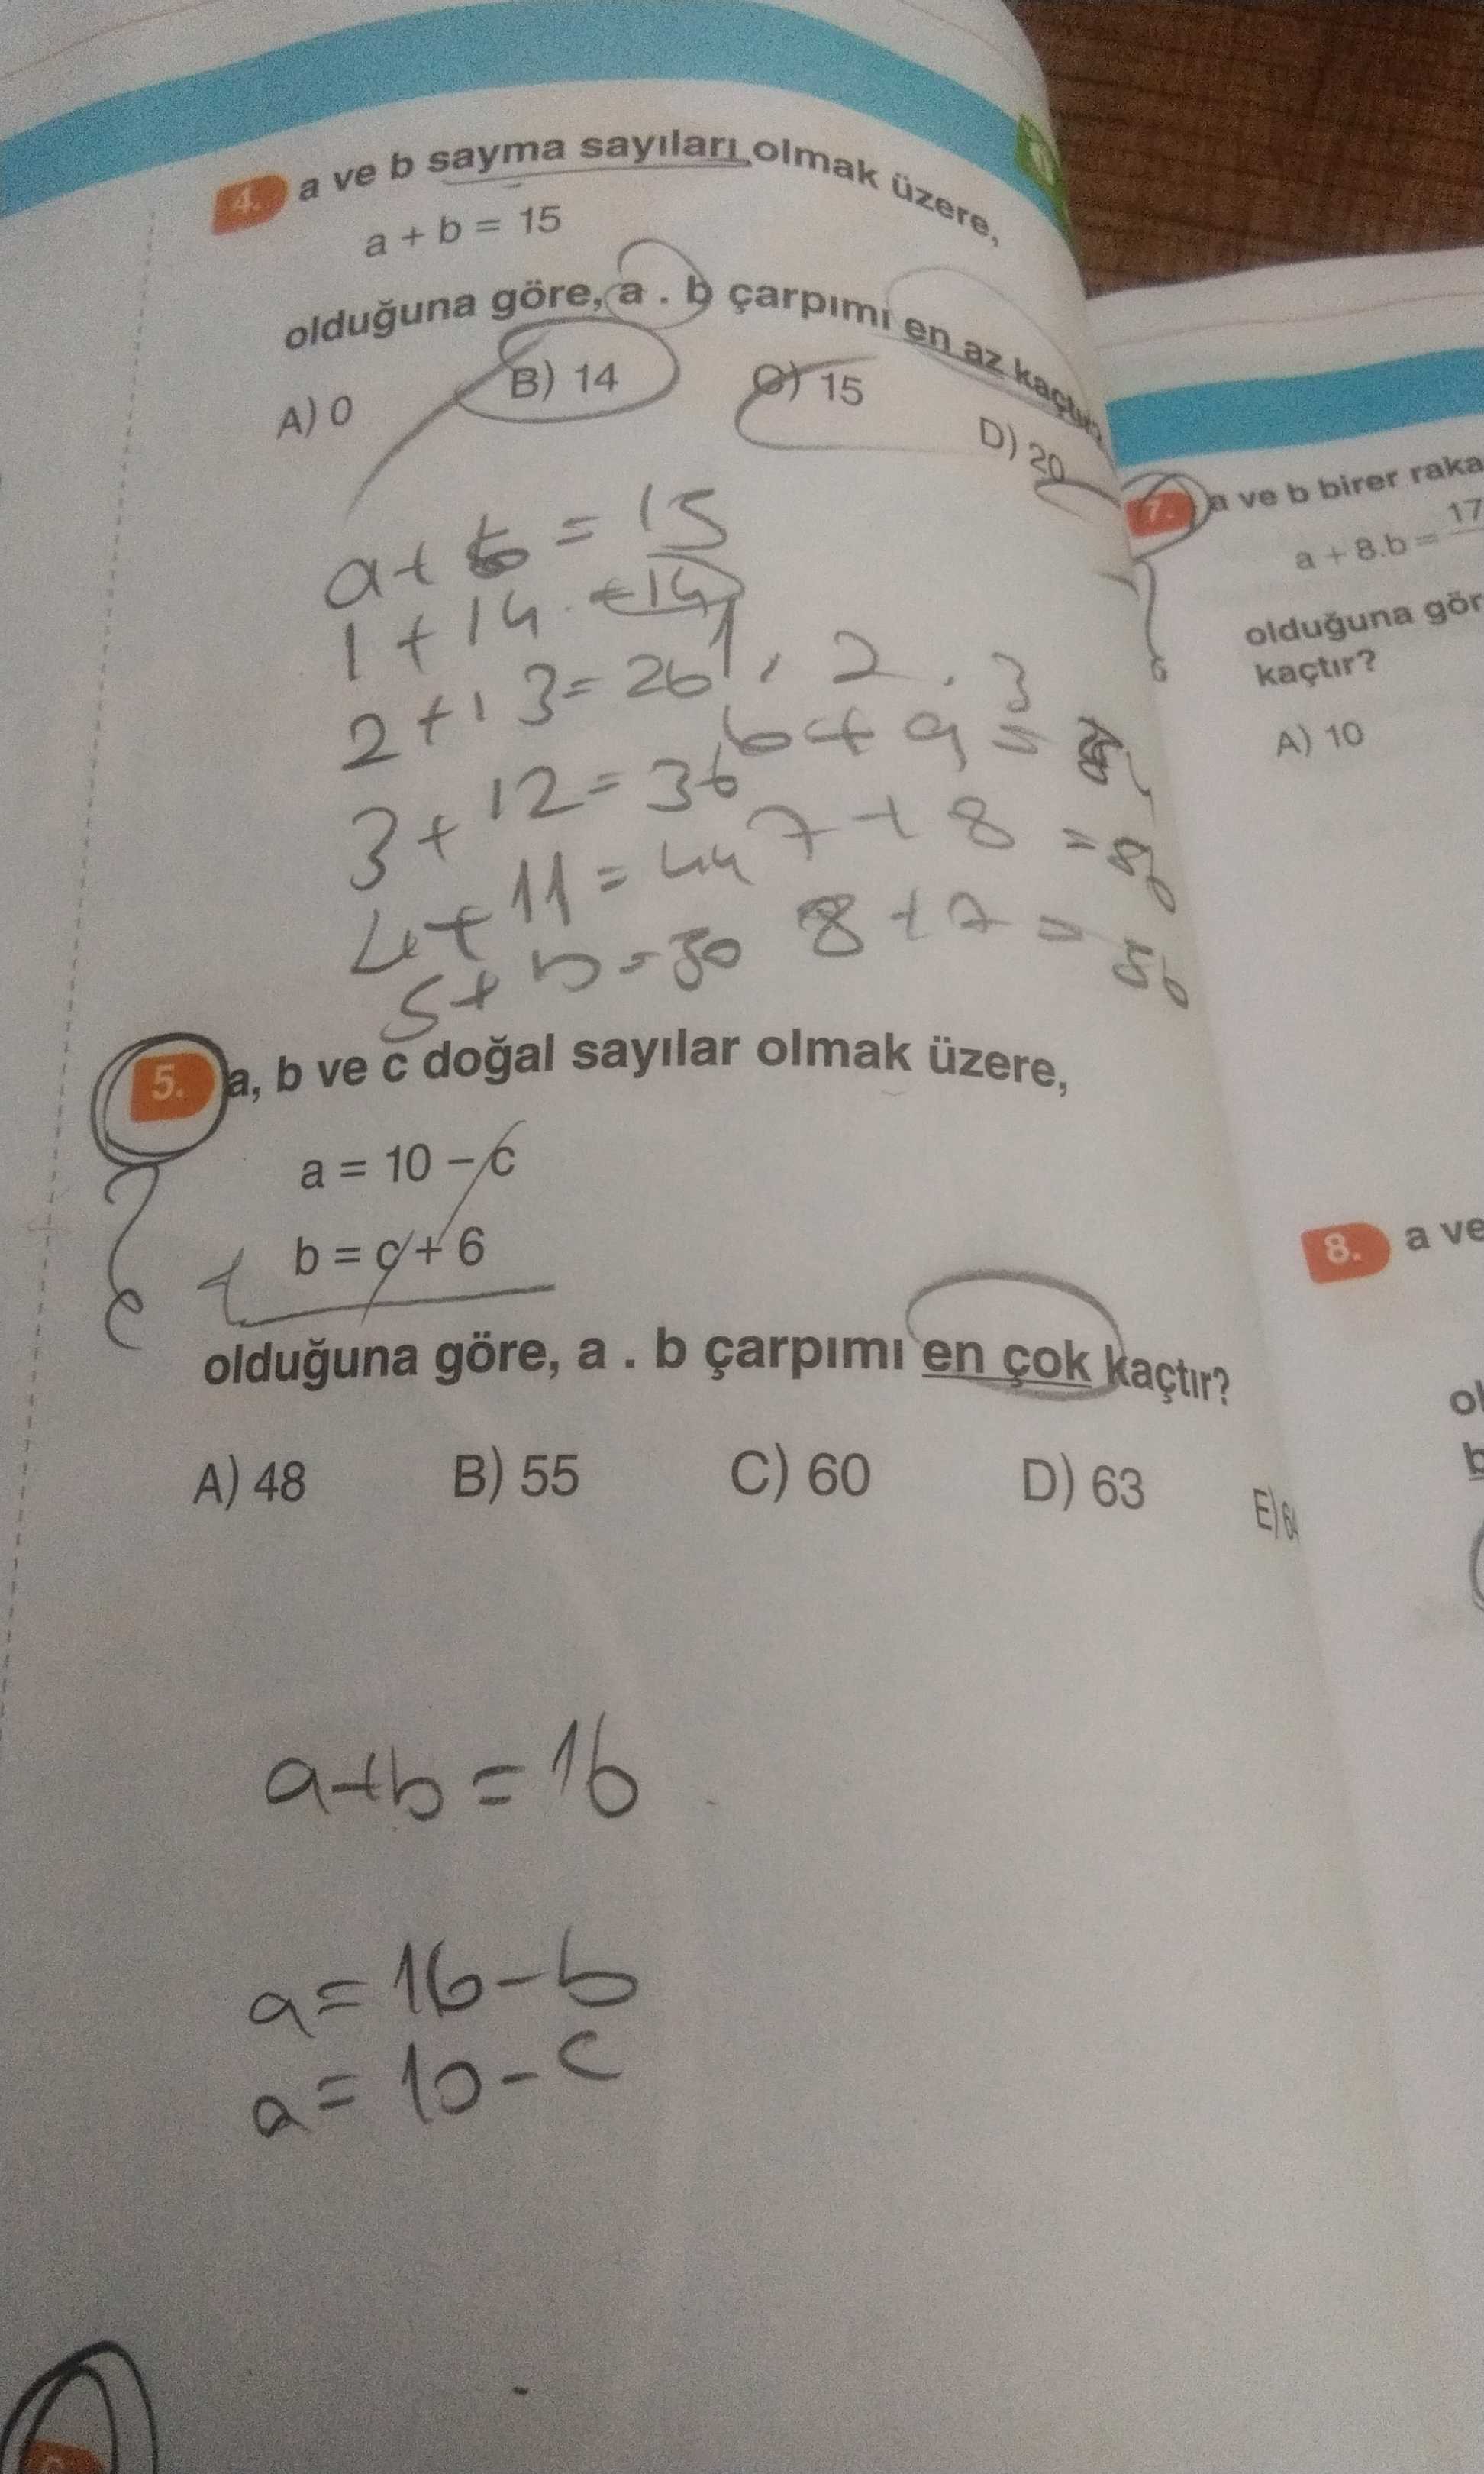 4. a ve b sayma sayıları olmak üzere,
a + b = 15
olduğuna göre, a . b çarpımı en az kaçtır?
A) 0 B) 14 C) 15 D) 20
a + b = 15
1 + 14 = 14
2 + 13 = 26 1, 2, 3
3 + 12 = 36 6 + 9 =
4 + 11 = 44 7 + 8 = 56
5 + 10 = 50 8 + 7 = 56
5. a, b ve c doğal sayılar olmak üzere,
a = 10 - c
b = c + 6
olduğuna göre, a . b çarpımı en çok kaçtır?
A) 48 B) 55 C) 60 D) 63 E) 64
a + b = 16
a = 16 - b
a = 10 - c
7. a ve b birer raka
a + 8.b = 17
olduğuna gör
kaçtır?
A) 10
8. a ve
ol
b